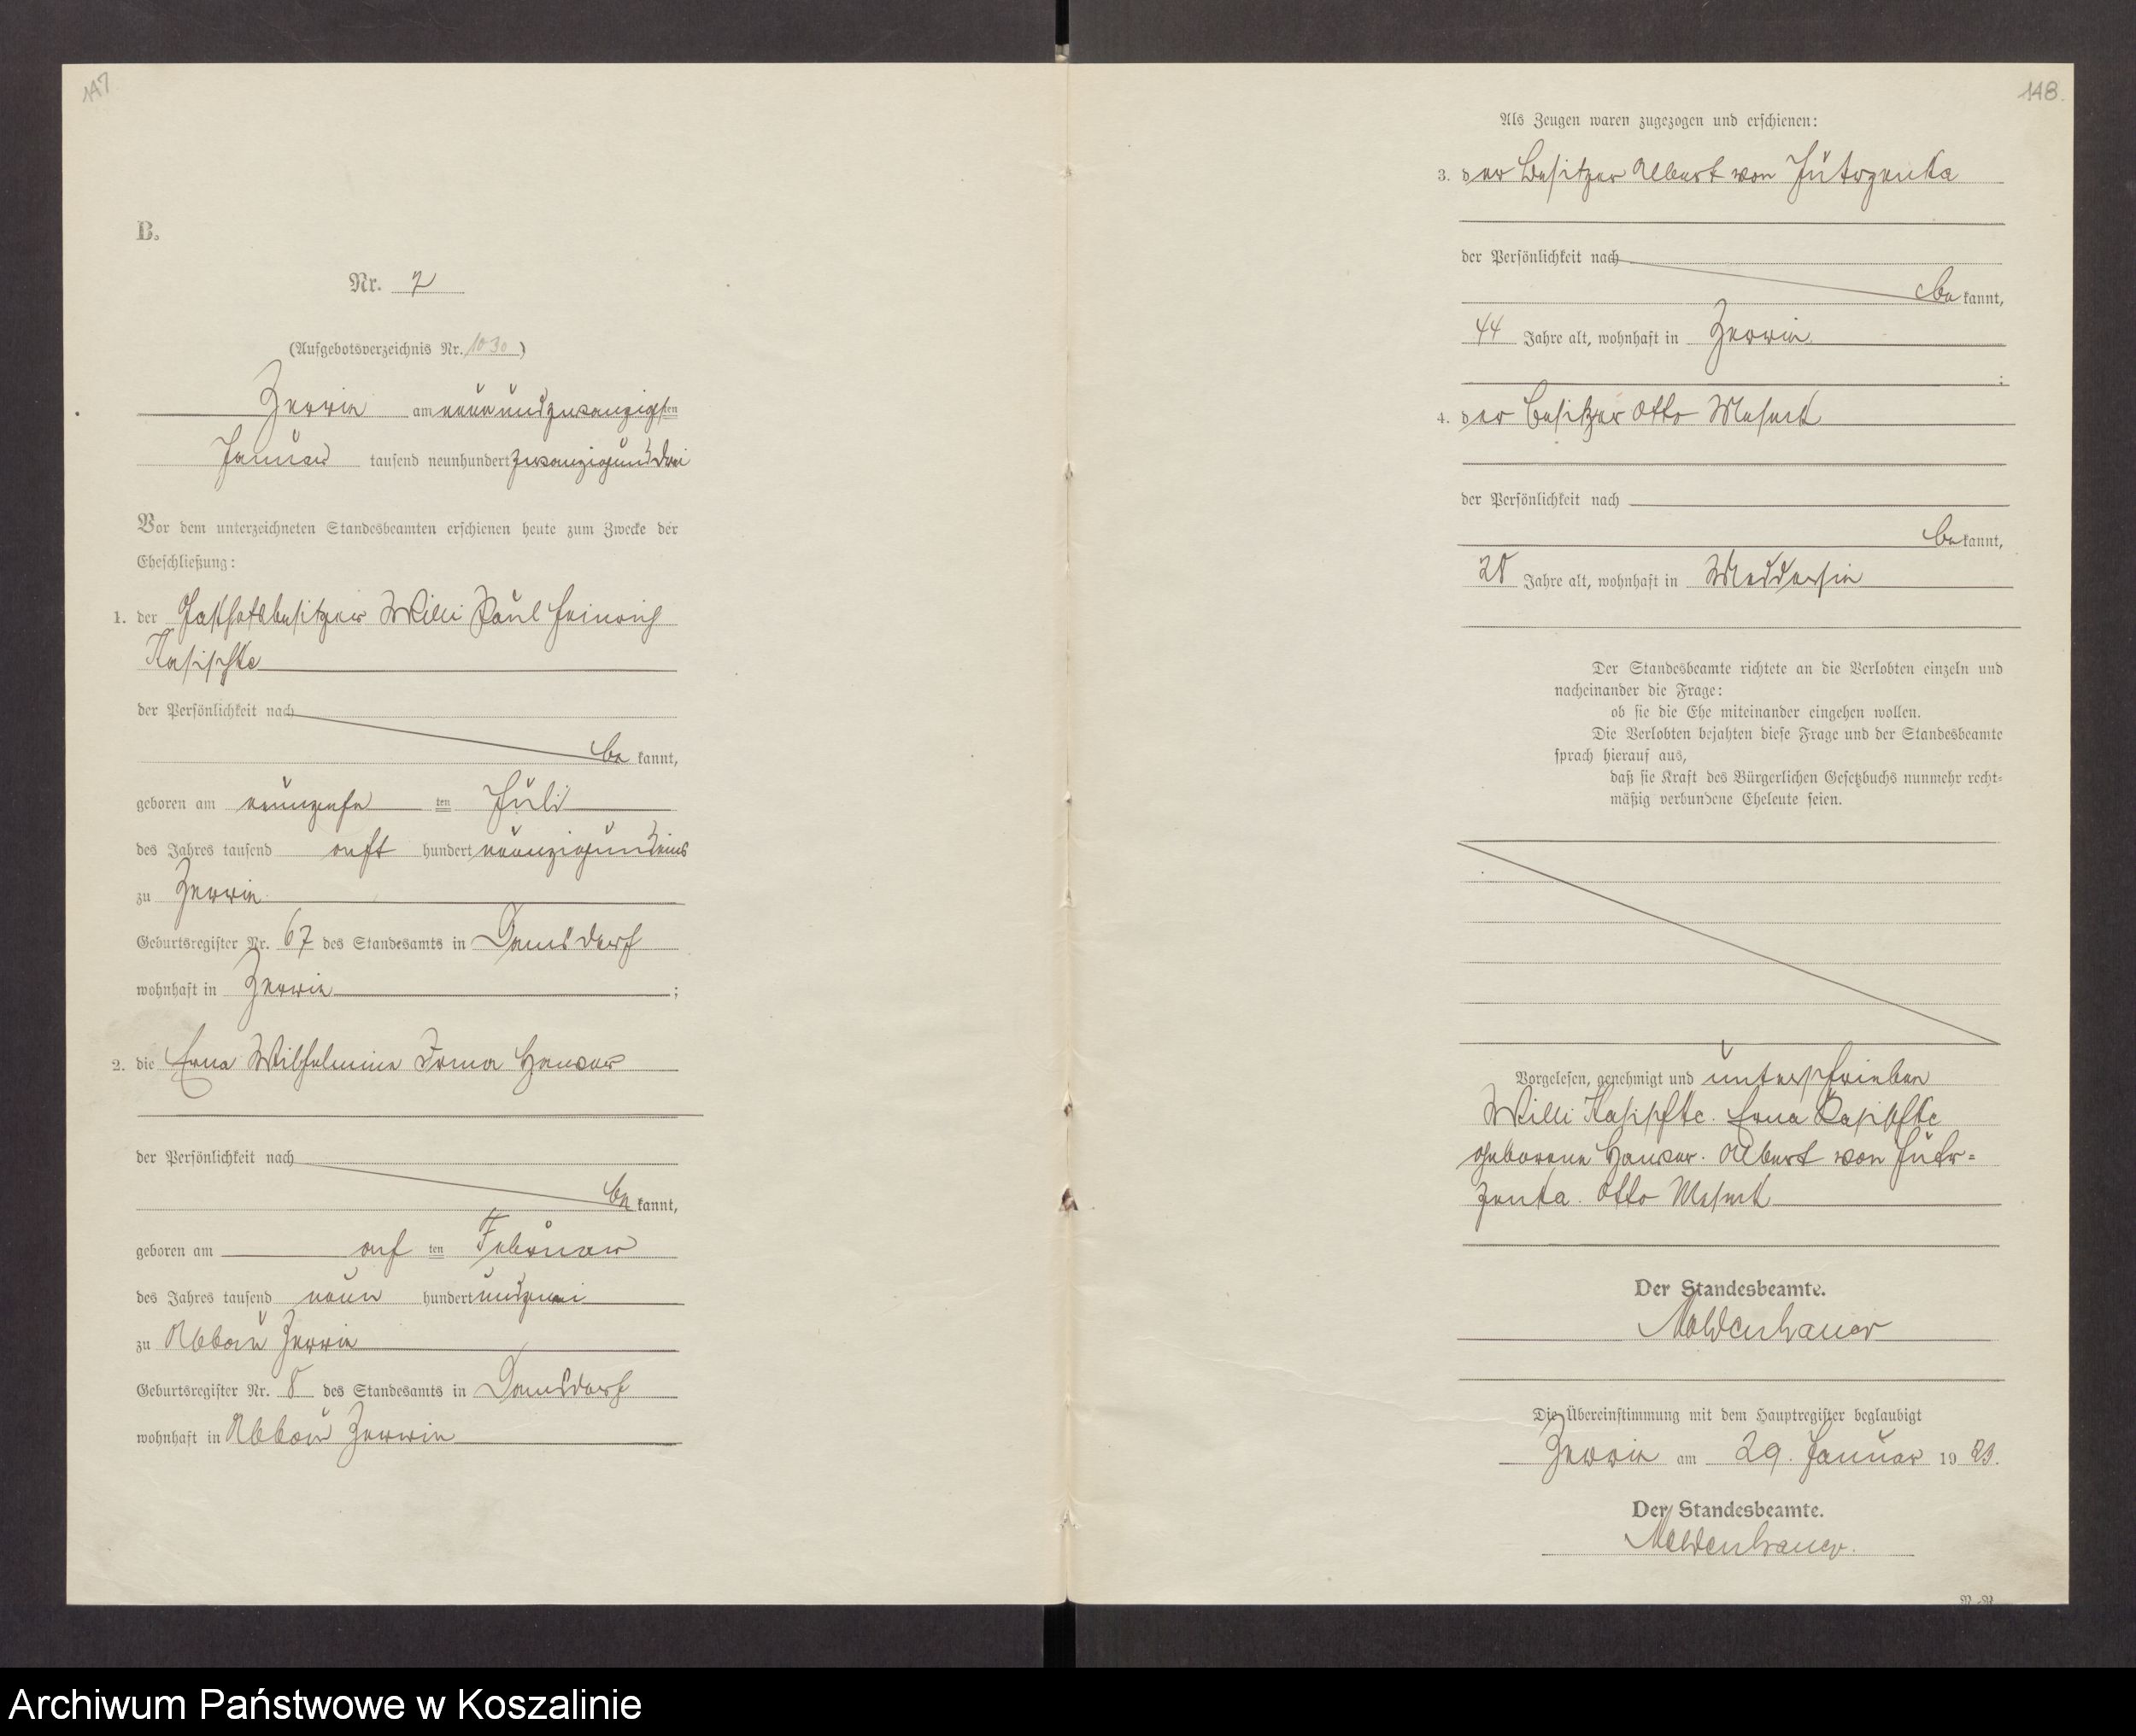 147
B.
Nr. 2
(Aufgebotsverzeichnis Nr. 1030)
Zerrin am neunundzwanzigsten
Januar tausend neunhundert zwanzigunddrei
Vor dem unterzeichneten Standesbeamten erschienen heute zum Zwecke der
Eheschließung:
1. der Gasthofsbesitzer Willi Paul Heinrich
Kasischke
der Persönlichkeit nach
be kannt,
geboren am neunzehn ten Juli
des Jahres tausend acht hundert neunzigundeins
zu Zerrin
Geburtsregister Nr. 67 des Standesamts in Damsdorf
wohnhaft in Zerrin ;
2. die Erna Wilhelmine Irma
der Persönlichkeit nach
be kannt,
geboren am ten Februar
des Jahres tausend neun hundert undzwei
zu Abbau Zerrin
Geburtsregister Nr. 8 des Standesamts in Damsdorf
wohnhaft in Abbau Zerrin
148.
Als Zeugen waren zugezogen und erschienen:
3. der Besitzer Albert von Jutrzenka
der Persönlichkeit nach
be kannt,
44 Jahre alt, wohnhaft in Zerrin
;
4. der Besitzer Otto
der Persönlichkeit nach
be kannt,
28 Jahre alt, wohnhaft in Meddersin
Der Standesbeamte richtete an die Verlobten einzeln und
nacheinander die Frage:
ob sie die Ehe miteinander eingehen wollen.
Die Verlobten bejahten diese Frage und der Standesbeamte
sprach hierauf aus,
daß sie Kraft des Bürgerlichen Gesetzbuchs nunmehr recht-
mäßig verbundene Eheleute seien.
Vorgelesen, genehmigt und unterschrieben
Willi Kasischke. Erna Kasischke
geborene Albert von Jutr-
zenka. Otto
Der Standesbeamte.
Moldenhauer
Die Übereinstimmung mit dem Hauptregister beglaubigt
Zerrin am 29. Januar 19 23.
Der Standesbeamte.
Moldenhauer.
Archiwum Państwowe w Koszalinie